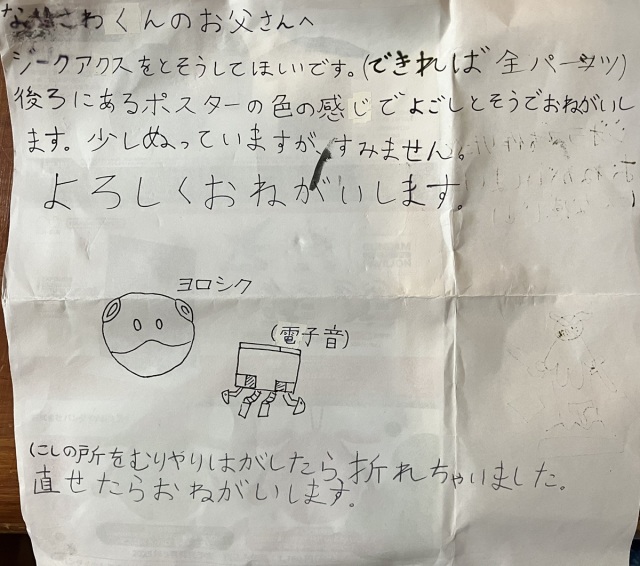 な わくんのお父さんへ
ジークアクスをとそうしてほしいです。(できれば全パーツ)
後ろにあるポスターの色の感じでよごしとそうでおねがいし
ます。少しぬっていますが、すみません。
よろしくおねがいします。
ヨロシク
(電子音)
(こしの所をむりやりはがしたら、折れちゃいました。
直せたらおねがいします。